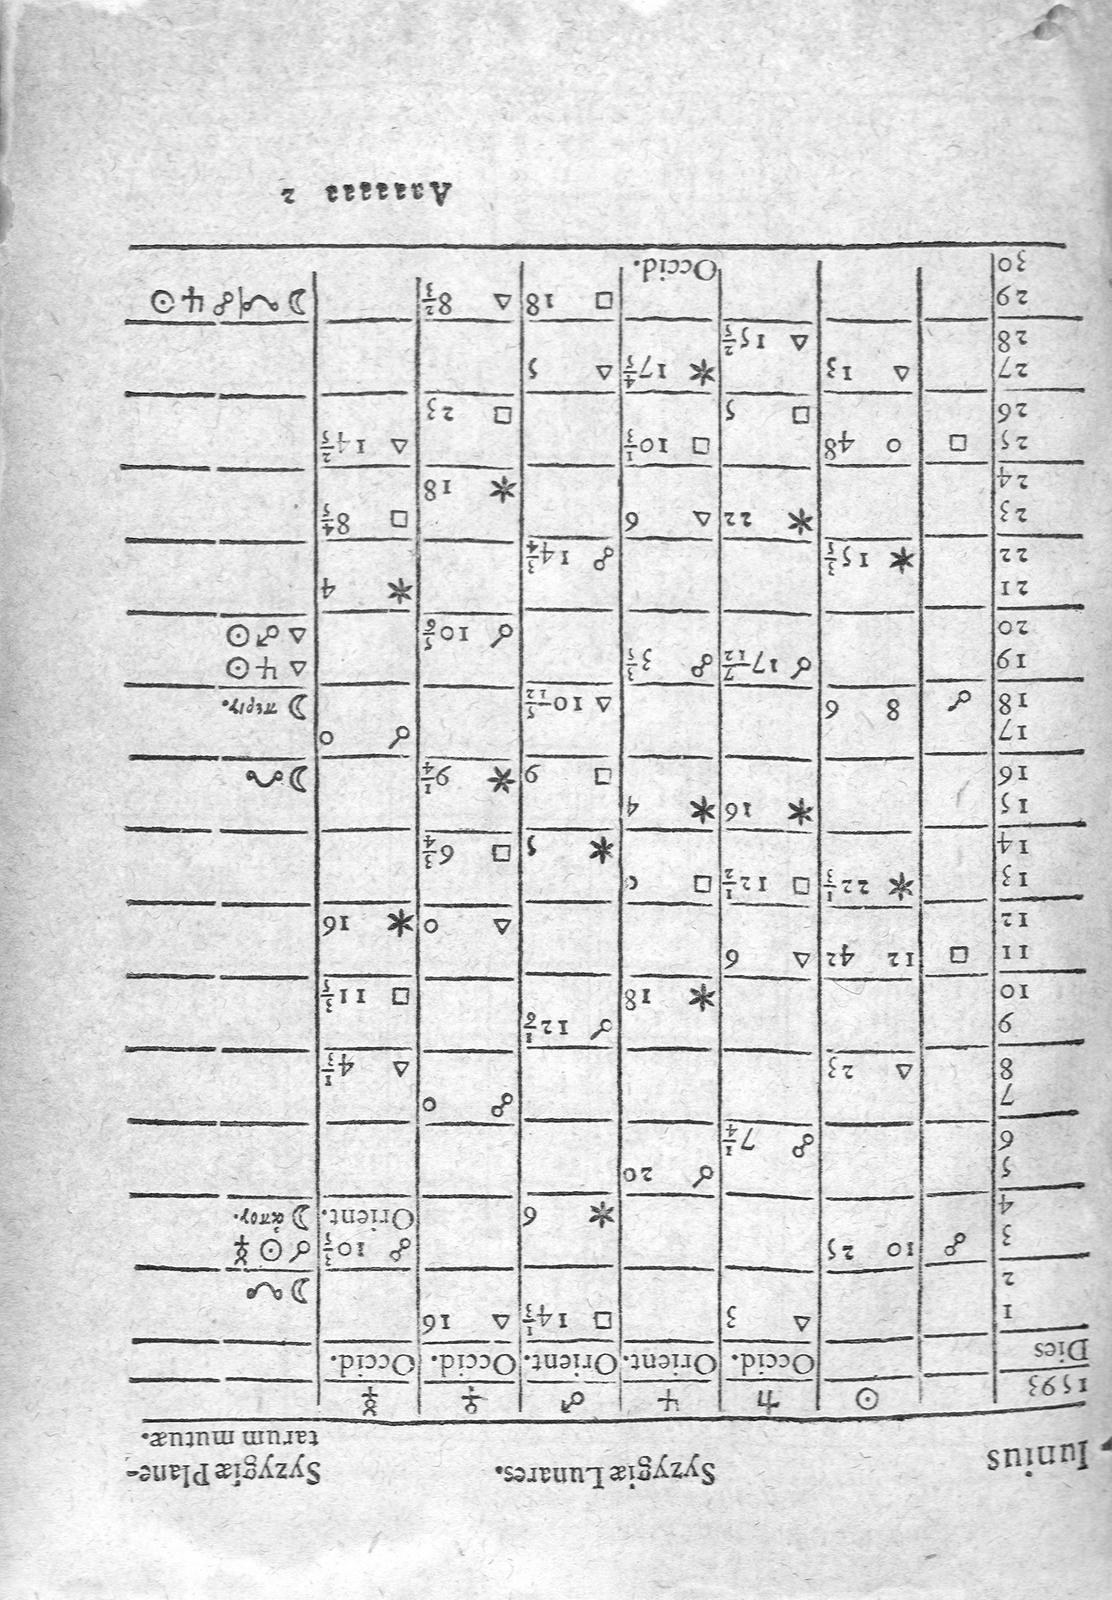 Iunius Syzygiæ Lunares. Syzygiæ Plane-
tarum mutuæ.
1593 ☉ ♄ ♃ ♂ ♀ ☿
Dies Occid. Orient. Orient. Occid. Occid.
1 △ 3 □ 14 1/3 △ 16
2 ☽
3 ☍ 10 25 ☍ 10 3/5 ☌ ☉ ☿
4 ✶ 6 Orient. ☽ ἀπογ.
5 ☌ 20
6 ☍ 7 1/4
7 ☍ 0
8 △ 23 △ 4 1/3
9 ☌ 12 1/6
10 ✶ 18 □ 11 3/5
11 □ 12 42 △ 9
12 △ 0 ✶ 16
13 ✶ 22 1/3 □ 12 1/2 □
14 ✶ 5 □ 6 3/4
15 ✶ 16 ✶ 4
16 □ 9 ✶ 9 1/4 ☽
17 ☌ 0
18 ☌ 8 9 △ 10 5/12 ☽ περιγ.
19 ☌ 17 7/12 ☍ 3 3/5 △ ♃ ☉
20 ☌ 10 5/6 △ ♂ ☉
21 ✶ 4
22 ✶ 15 3/5 ☍ 14 3/4
23 ✶ 22 △ 6 □ 8 4/5
24 ✶ 18
25 □ 0 48 □ 10 1/3 △ 14 2/5
26 □ 5 □ 23
27 △ 13 ✶ 17 4/5 △ 5
28 △ 15 2/5
29 □ 18 △ 8 2/3 ☽ ☍ ♃ ☉
30 Occid.
Aaaaaaa 2